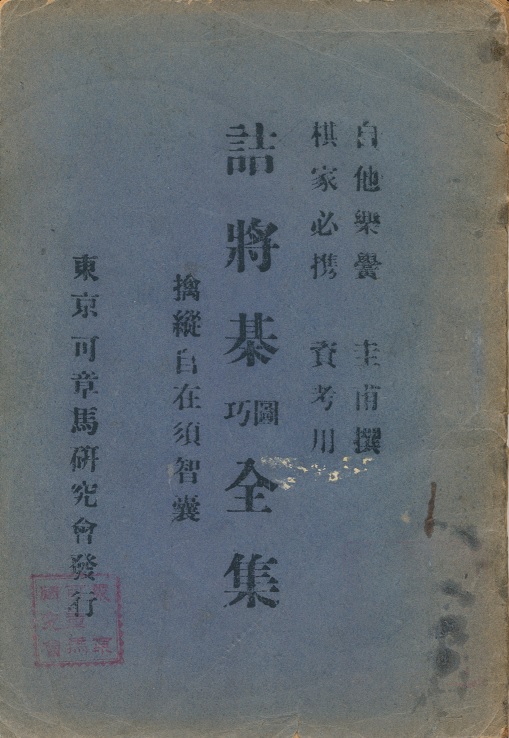 自他樂鬢 圭甫撰
棋家必携 資考用
詰將棊圖巧全集
擒縱自在須智囊
東京可章馬研究會發行